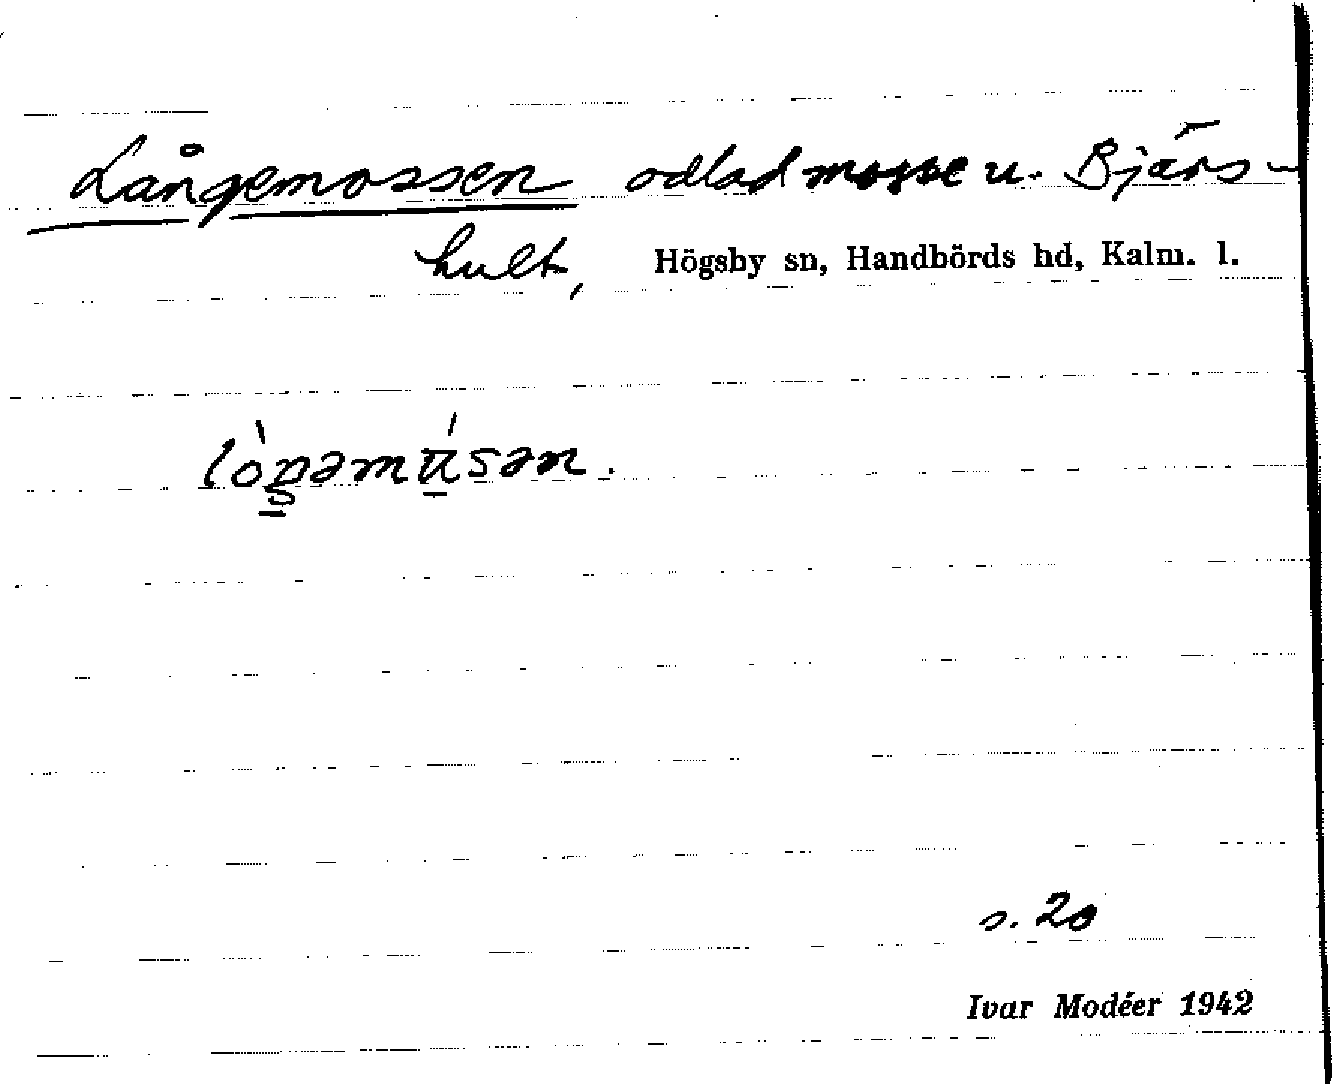 Långemossen odlad mosse u. Bjärs-
hult, Högsby sn, Handbörds hd, Kalm. l.
s. 20
Ivar Modéer 1942